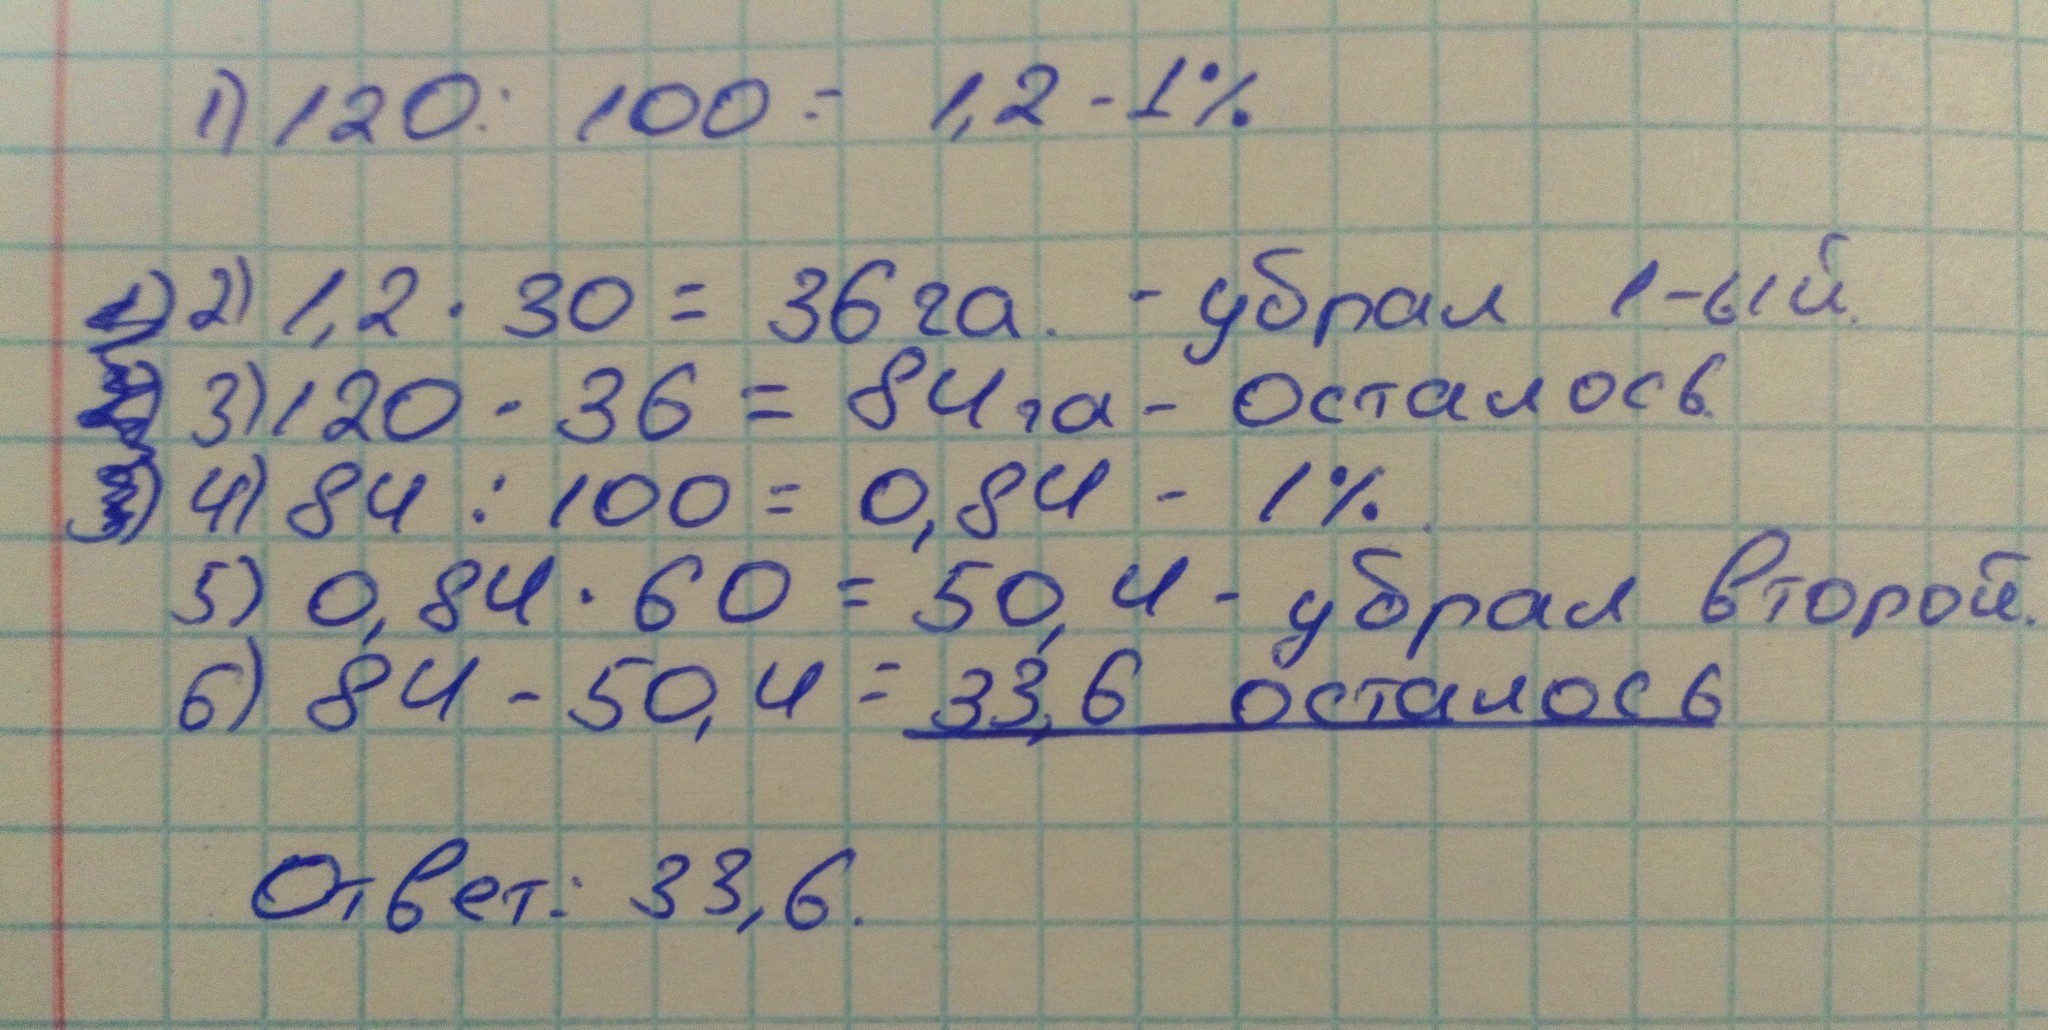 1) 120 : 100 = 1,2 - 1%
2) 1,2 · 30 = 36 га. - убрал 1-ый.
3) 120 - 36 = 84 га - осталось.
4) 84 : 100 = 0,84 - 1%.
5) 0,84 · 60 = 50,4 - убрал второй.
6) 84 - 50,4 = 33,6 осталось
Ответ: 33,6.